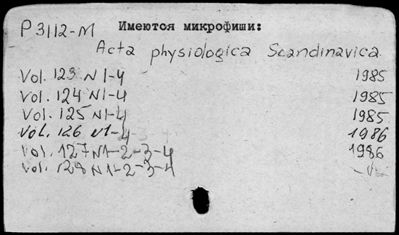 P 3112-M Имеются микрофиши:
Acta physiologica Scandinavica
Vol. 123 N1-4 1985
Vol. 124 N1-4 1985
Vol. 125 N1-4 1985
Vol. 126 N1-4 1986
Vol. 127 N1-2-3-4 1986
Vol. 128 N1-2-3-4 -"-